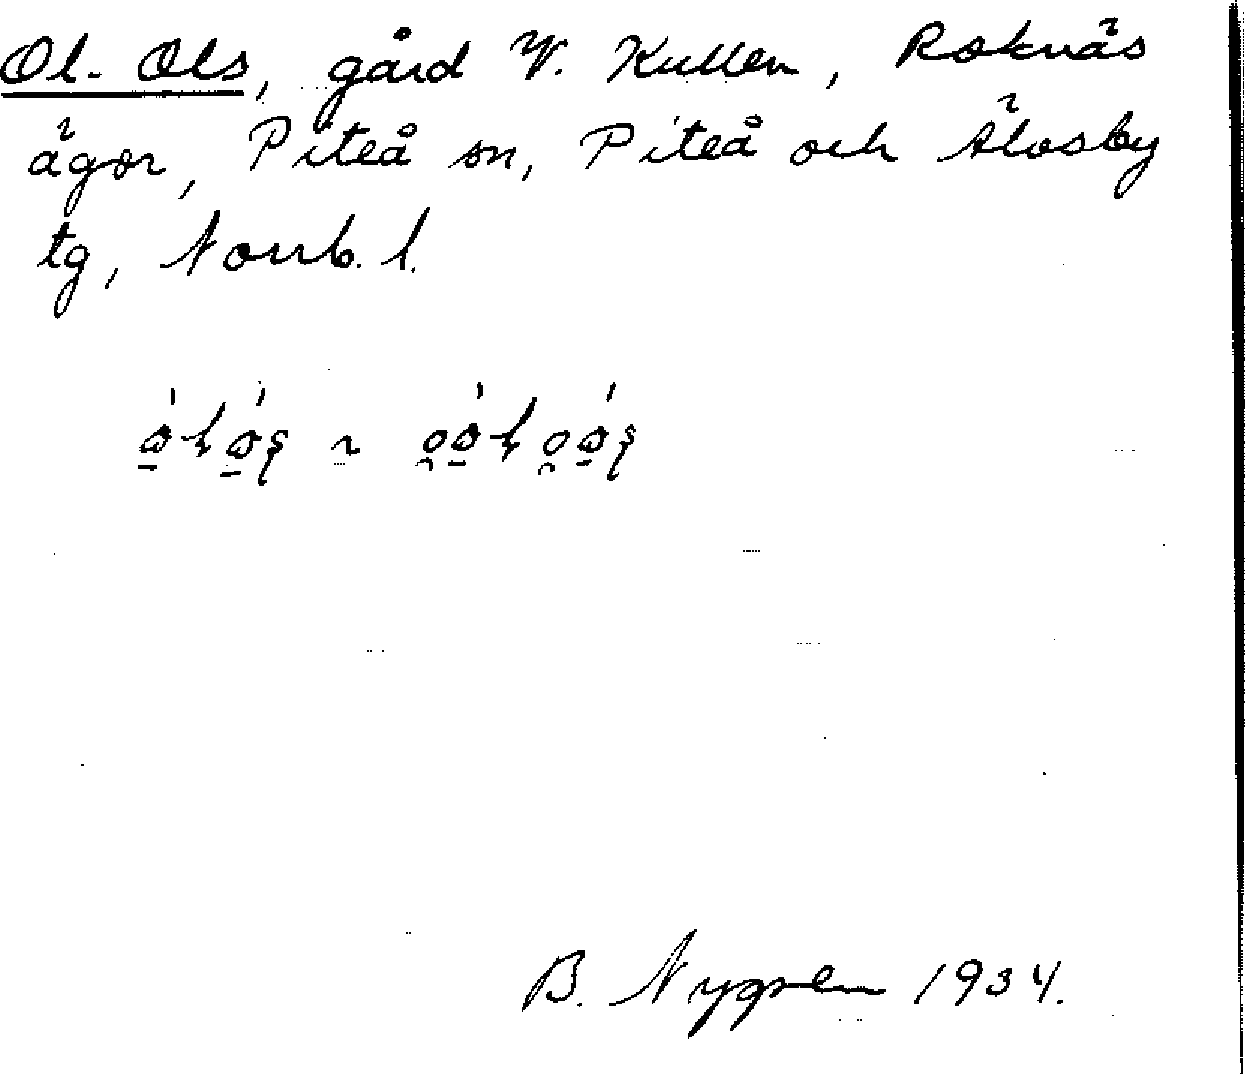 Ol-Ols, gård V. Kullen, Roknäs
ägor, Piteå sn, Piteå och Älvsby
tg, Norrb. l.
B. Nygren 1934.